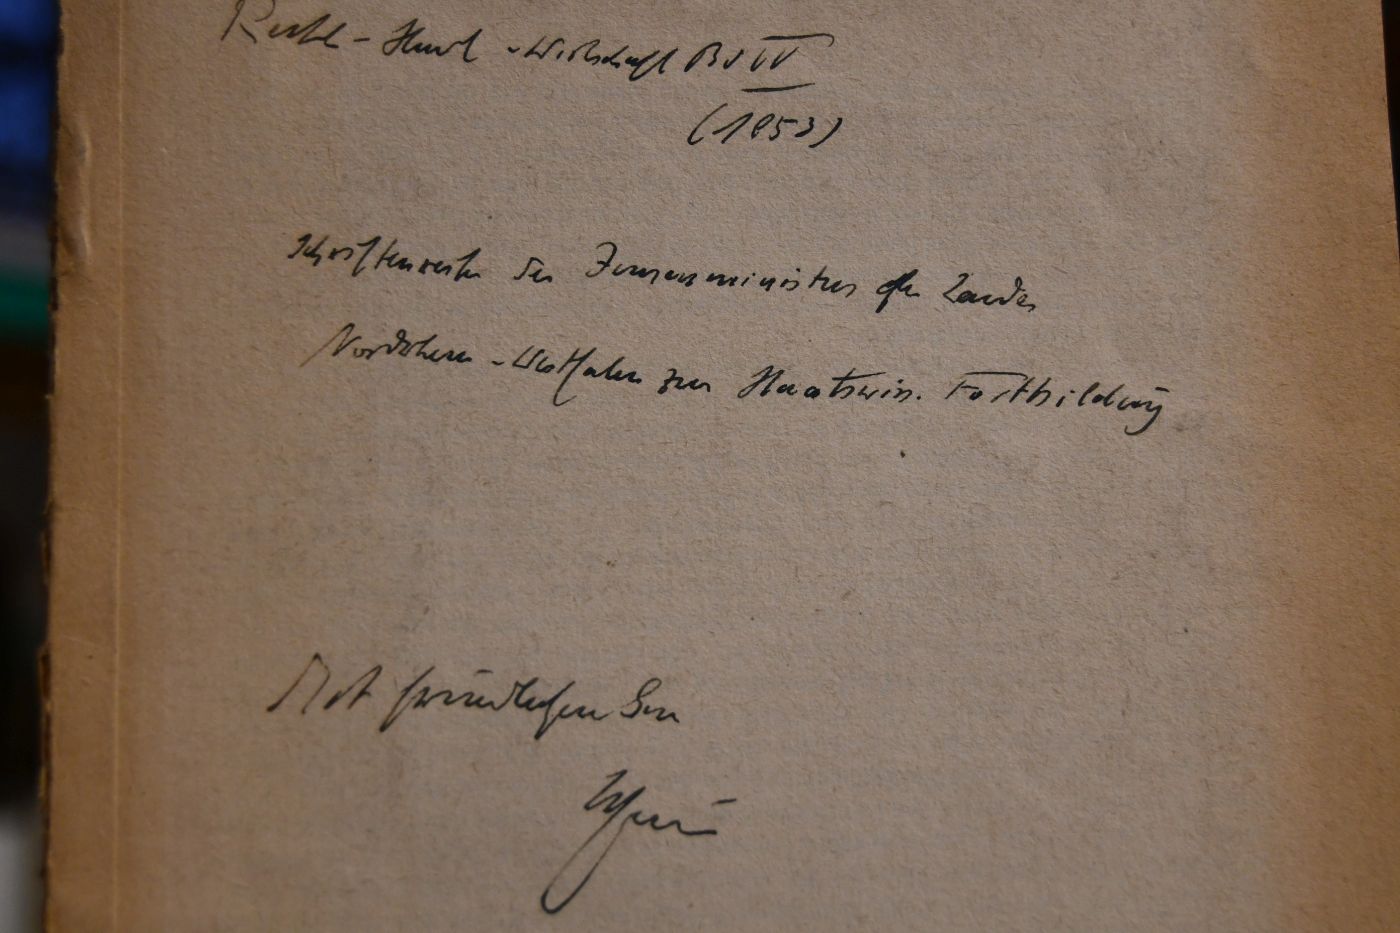 Recht - Staat - Wirtschaft Bd IV
(1953)
Schriftenreihe des Innenministers des Landes
Nordrhein-Westfalen zur staatswiss. Fortbildung
Mit freundlichen